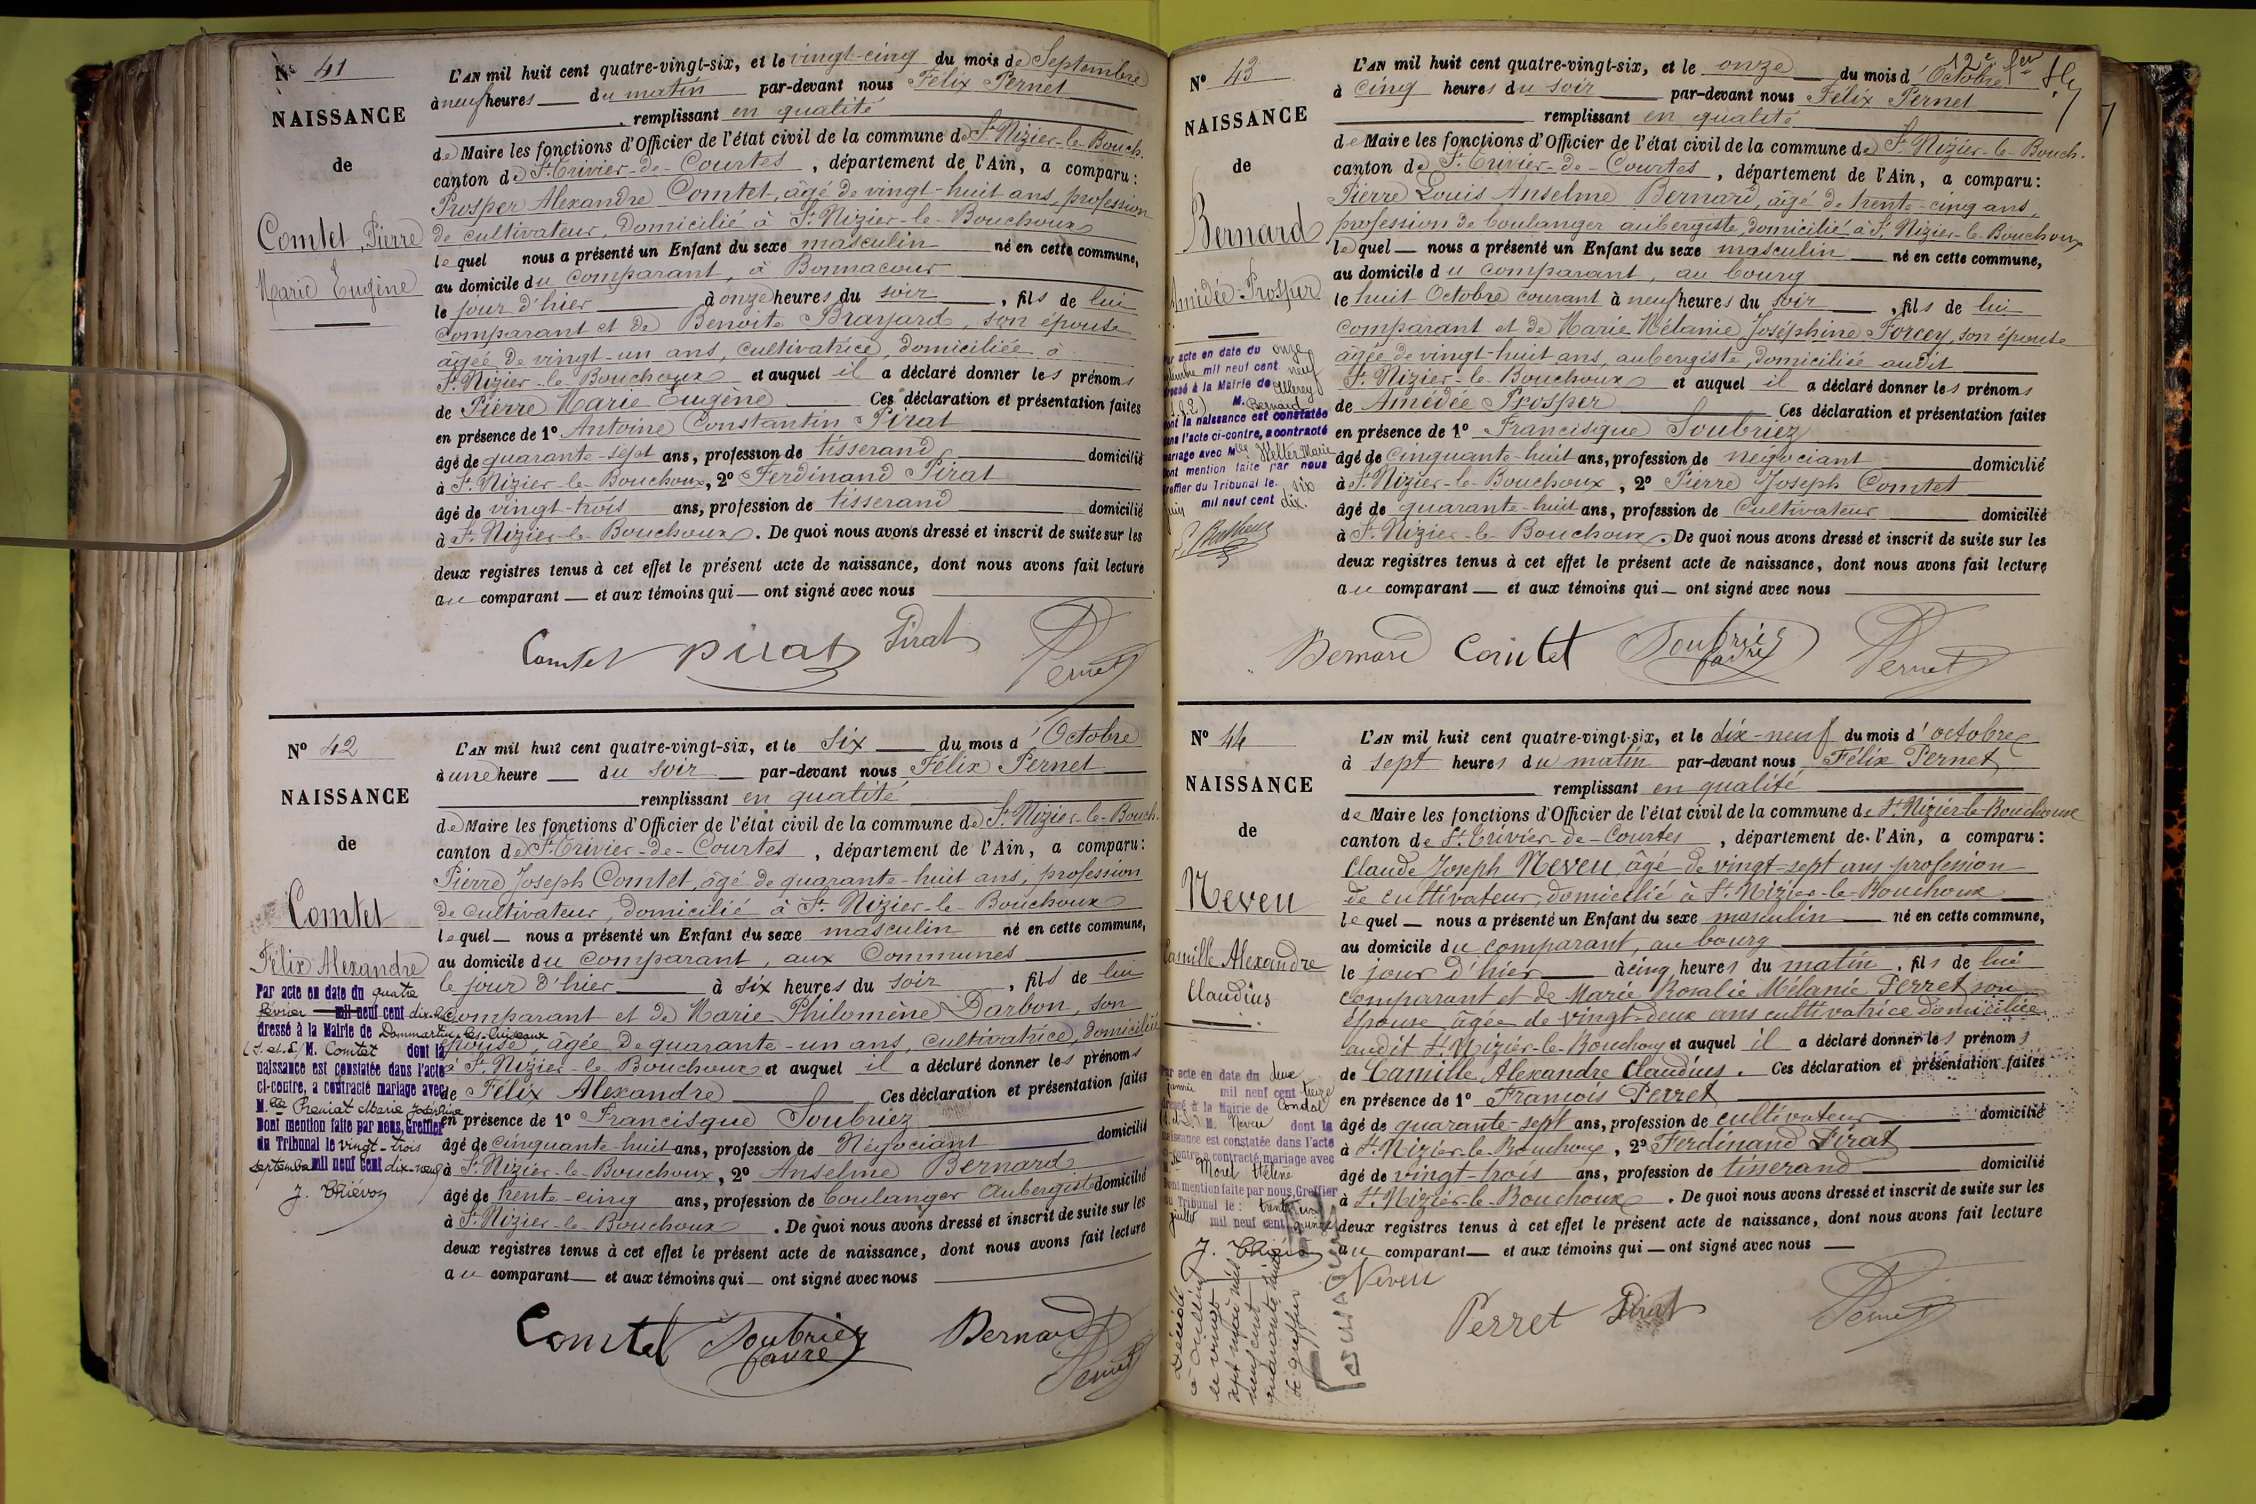 N° 41
NAISSANCE
de
Comtet, Pierre
Marie Eugène
L'AN mil huit cent quatre-vingt-six, et le vingt-cinq du mois de Septembre
à neuf heures du matin par-devant nous Félix Pernet
remplissant en qualité
de Maire les fonctions d'Officier de l'état civil de la commune de St Nizier-le-Bouch.
canton de St Trivier-de-Courtes, département de l'Ain, a comparu:
Prosper Alexandre Comtet, âgé de vingt-huit ans, profession
de cultivateur, domicilié à St Nizier-le-Bouchoux
lequel nous a présenté un Enfant du sexe masculin né en cette commune,
au domicile du comparant, à Bonnacour
le jour d'hier à onze heures du soir, fils de lui
comparant et de Benoite Brayard, son épouse
âgée de vingt-un ans, cultivatrice, domiciliée à
St Nizier-le-Bouchoux et auquel il a déclaré donner les prénoms
de Pierre Marie Eugène Ces déclaration et présentation faites
en présence de 1° Antoine Constantin Pirat
âgé de quarante-sept ans, profession de tisserand domicilié
à St Nizier-le-Bouchoux, 2° Ferdinand Pirat
âgé de vingt-trois ans, profession de tisserand domicilié
à St Nizier-le-Bouchoux. De quoi nous avons dressé et inscrit de suite sur les
deux registres tenus à cet effet le présent acte de naissance, dont nous avons fait lecture
au comparant et aux témoins qui ont signé avec nous
Comtet Pirat Pirat Pernet
N° 42
NAISSANCE
de
Comtet
Félix Alexandre
Par acte en date du quatre
février mil neuf cent dix-
dressé à la Mairie de Dommartin-les-Cuiseaux
(S.et.L) M. Comtet dont la
naissance est constatée dans l'acte
ci-contre, a contracté mariage avec
Mlle Preniat Marie Joséphine
Dont mention faite par nous, Greffier
du Tribunal le vingt-trois
septembre mil neuf cent dix-neuf
J. Thiévon
L'AN mil huit cent quatre-vingt-six, et le six du mois d'Octobre
à une heure du soir par-devant nous Félix Pernet
remplissant en qualité
de Maire les fonctions d'Officier de l'état civil de la commune de St Nizier-le-Bouch.
canton de St Trivier-de-Courtes, département de l'Ain, a comparu:
Pierre Joseph Comtet, âgé de quarante-huit ans, profession
de cultivateur, domicilié à St Nizier-le-Bouchoux
lequel nous a présenté un Enfant du sexe masculin né en cette commune,
au domicile du comparant, aux Communes
le jour d'hier à six heures du soir, fils de lui
comparant et de Marie Philomène Darbon, son
épouse, âgée de quarante-un ans, cultivatrice, domiciliée
à St Nizier-le-Bouchoux et auquel il a déclaré donner les prénoms
de Félix Alexandre Ces déclaration et présentation faites
en présence de 1° Francisque Soubriez
âgé de cinquante-huit ans, profession de Négociant domicilié
à St Nizier-le-Bouchoux, 2° Anselme Bernard
âgé de trente-cinq ans, profession de boulanger Aubergiste domicilié
à St Nizier-le-Bouchoux. De quoi nous avons dressé et inscrit de suite sur les
deux registres tenus à cet effet le présent acte de naissance, dont nous avons fait lecture
au comparant et aux témoins qui ont signé avec nous
Comtet Soubriez Bernard
favre Pernet
12e fer
N° 43
NAISSANCE
de
Bernard
Amédée-Prosper
Par acte en date du onze
septembre mil neuf cent neuf
dressé à la Mairie de Allerey
M. Bernard
dont la naissance est constatée
dans l'acte ci-contre, a contracté
mariage avec Mlle Metter Marie
Dont mention faite par nous
Greffier du Tribunal le six
juin mil neuf cent dix.
L'AN mil huit cent quatre-vingt-six, et le onze du mois d'Octobre
à cinq heures du soir par-devant nous Félix Pernet
remplissant en qualité
de Maire les fonctions d'Officier de l'état civil de la commune de St Nizier-le-Bouch.
canton de St Trivier-de-Courtes, département de l'Ain, a comparu:
Pierre Louis Anselme Bernard, âgé de trente-cinq ans,
profession de boulanger aubergiste, domicilié à St Nizier-le-Bouchoux
lequel nous a présenté un Enfant du sexe masculin né en cette commune,
au domicile du comparant, au bourg
le huit Octobre courant à neuf heures du soir, fils de lui
comparant et de Marie Mélanie Joséphine Forcey, son épouse
âgée de vingt-huit ans, aubergiste, domiciliée audit
St Nizier-le-Bouchoux et auquel il a déclaré donner les prénoms
de Amédée Prosper Ces déclaration et présentation faites
en présence de 1° Francisque Soubriez
âgé de cinquante-huit ans, profession de négociant domicilié
à St Nizier-le-Bouchoux, 2° Pierre Joseph Comtet
âgé de quarante-huit ans, profession de cultivateur domicilié
à St Nizier-le-Bouchoux. De quoi nous avons dressé et inscrit de suite sur les
deux registres tenus à cet effet le présent acte de naissance, dont nous avons fait lecture
au comparant et aux témoins qui ont signé avec nous
Bernard Comtet Soubriez Pernet
favre
N° 44
NAISSANCE
de
Neveu
Camille Alexandre
Claudius
Par acte en date du deux
janvier mil neuf cent treize
dressé à la Mairie de Condal
M. Neveu dont la
naissance est constatée dans l'acte
ci-contre a contracté mariage avec
Morel Hélène
Dont mention faite par nous, Greffier
du Tribunal le: trente un
juillet mil neuf cent quinze
Décédé
à Oullins
le vingt
sept
neuf cent
quarante
Le greffier
L'AN mil huit cent quatre-vingt-six, et le dix-neuf du mois d'octobre
à sept heures du matin par-devant nous Félix Pernet
remplissant en qualité
de Maire les fonctions d'Officier de l'état civil de la commune de St Nizier-le-Bouchoux
canton de St Trivier-de-Courtes, département de l'Ain, a comparu:
Claude Joseph Neveu, âgé de vingt-sept ans profession
de cultivateur, domicilié à St Nizier-le-Bouchoux
lequel nous a présenté un Enfant du sexe masculin né en cette commune,
au domicile du comparant, au bourg
le jour d'hier à cinq heures du matin, fils de lui
comparant et de Marie Rosalie Mélanie Perret son
épouse âgée de vingt-deux ans cultivatrice domiciliée
audit St Nizier-le-Bouchoux et auquel il a déclaré donner les prénoms
de Camille Alexandre Claudius. Ces déclaration et présentation faites
en présence de 1° François Perret
âgé de quarante-sept ans, profession de cultivateur domicilié
à St Nizier-le-Bouchoux, 2° Ferdinand Pirat
âgé de vingt-trois ans, profession de tisserand domicilié
à St Nizier-le-Bouchoux. De quoi nous avons dressé et inscrit de suite sur les
deux registres tenus à cet effet le présent acte de naissance, dont nous avons fait lecture
au comparant et aux témoins qui ont signé avec nous
Neveu
Perret Pirat Pernet